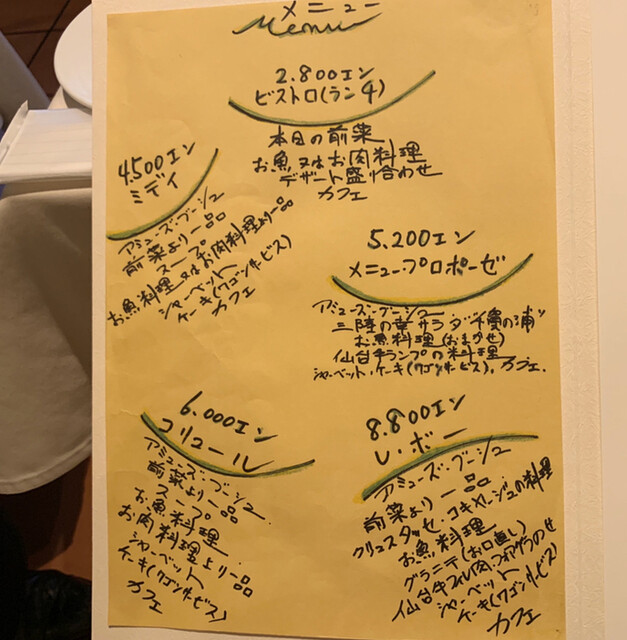 メニュー
Menu
2.800エン
ビストロ(ランチ)
本日の前菜
お魚又はお肉料理
デザート盛り合わせ
カフェ
4.500エン
ミディ
アミューズ・ブーシュ
前菜より一品
スープ
お魚料理又はお肉料理より一品
シャーベット
ケーキ(ワゴンサービス)
カフェ
5.200エン
メニュー・プロポーゼ
アミューズ・ブーシュ
三陸の幸サラダ
お魚料理(おまかせ)
仙台牛ランプの料理
シャーベット・ケーキ(ワゴンサービス)、カフェ.
6.000エン
コリエール
アミューズ・ブーシュ
前菜より一品
スープ
お魚料理
お肉料理より一品
シャーベット
ケーキ(ワゴンサービス)
カフェ
8.800エン
レ・ボー
アミューズ・ブーシュ
前菜より一品
クリュスタッセ・コキヤージュの料理
お魚料理
グラニテ(お口直し)
仙台牛フィレ肉・フォアグラのせ
シャーベット
ケーキ(ワゴンサービス)
カフェ